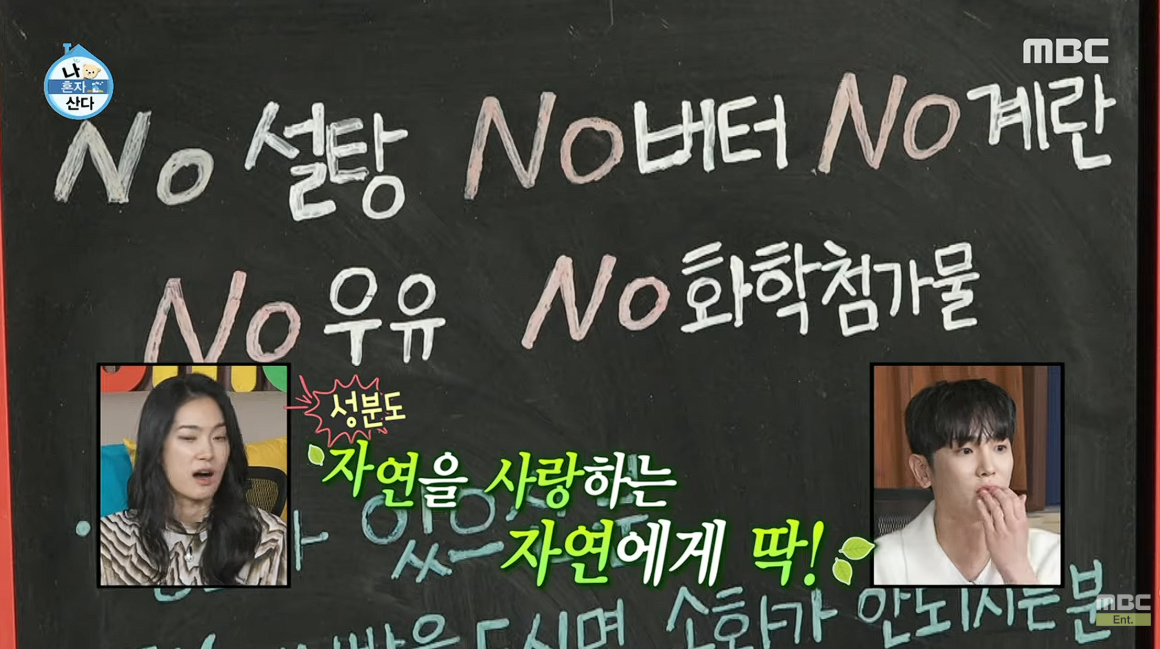 MBC
나
혼자
산다
No 설탕 No 버터 No 계란
No 우유 No 화학첨가물
성분도
자연을 사랑하는
자연에게 딱!
소화가 안되시는분
MBC
Ent.